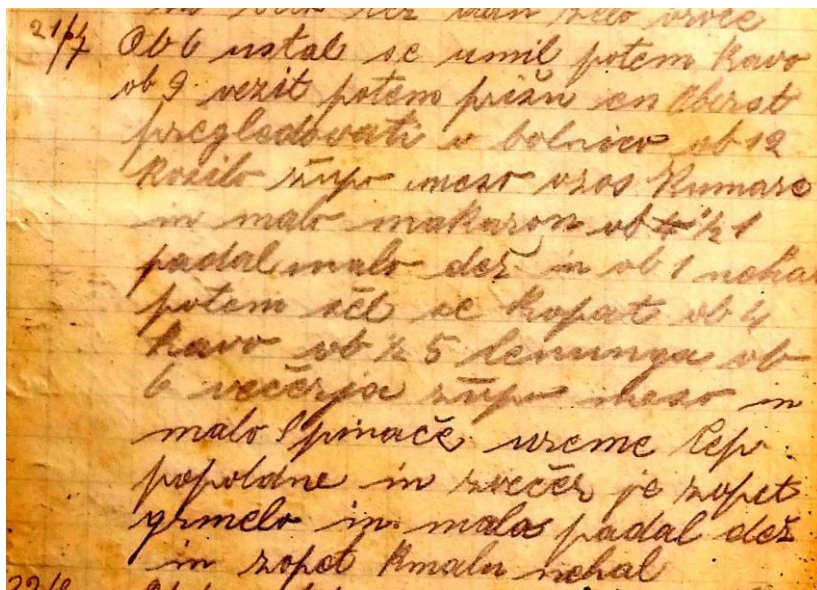 čez dan zelo vroče
21/7 Ob 6 ustal se umil potem kavo
ob 9 vezit potem prišu en Oberst
pregledovati v bolnico ob 12
kosilo župo meso vsos kumare
in malo makaron ob ½ 1
padal malo dež in ob 1 nehal
potem šel se kopat ob 4
kavo ob ½ 5 lenunga ob
6 večerja župo meso in
malo Špinače vreme lepo
popoldne in zvečer je zopet
grmelo in malo padal dež
in zopet kmalu nehal